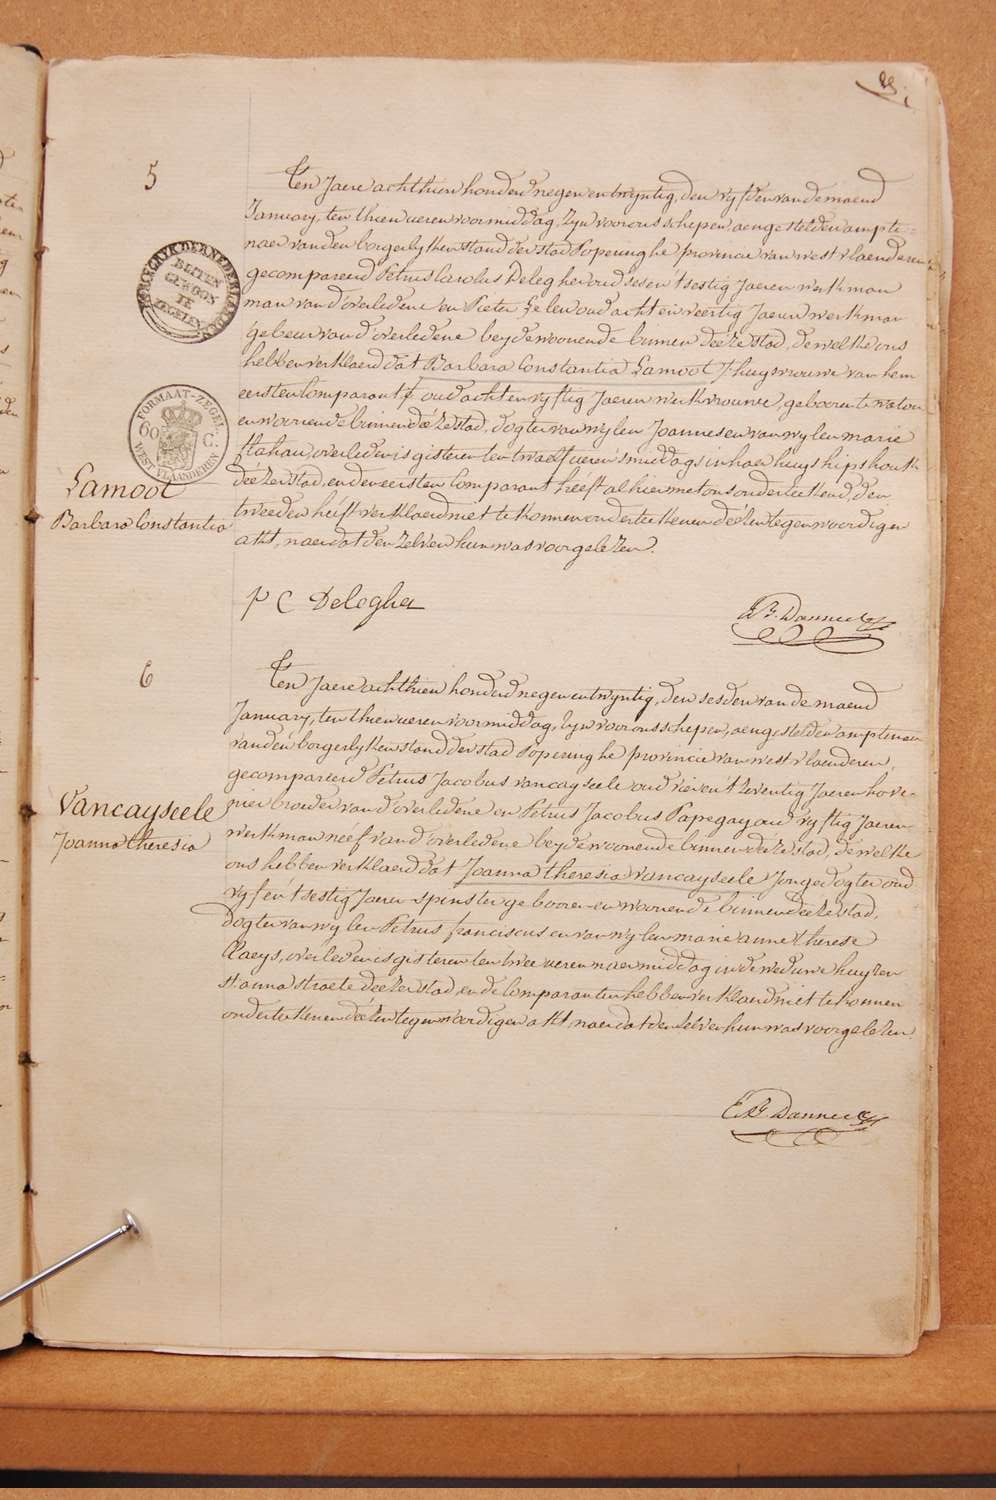 5
Ten Jaere achthien honderd negen en twyntig, den vyfden van de maend
January, ten thien ueren voormiddag, zyn voor ons schepen, aengestelden ampte-
naer van den borgerlyken stand der stad Poperinghe provincie van west vlaenderen
gecompareerd Petrus Carolus Deleghe oud seven t'sestig Jaeren werkman
man van d'overledene en Pieter oud acht en veertig Jaeren werkman
gebeur van d'overledene beyde woonende binnen deeze stad, dewelke ons
hebben verklaerd dat Barbara Constantia Lamoot huysvrouwe van hem
eersten Comparant oud acht en vyftig Jaeren werkvrouwe, geboren te watou
en woonende binnen déze stad, dogter van wylen Joannes en van wylen marie
overleden is gisteren ten twaelf ueren 's middags in haer huys hipshoek
déézer stad, en den eersten Comparant heeft alhier met ons onderteekend, den
tweeden héeft verklaerd niet te konnen onderteekenen déézen tegenwoordigen
akt, naer dat den zelven hun was voorgelezen.
KONINGRYK DER NEDERLANDEN
BUITEN
GEWOON
TE
ZEGELEN
FORMAAT-ZEGEL
60 C.
WEST VLAANDEREN
Lamoot
Barbara Constantia
P C Deleghe
6
Ten Jaere achthien honderd negen en twyntig, den sesden van de maend
January, ten thien ueren voormiddag, zyn voor ons schepen, aengestelden amptenaer
van den borgerlyken stand der stad Poperinghe provincie van west vlaenderen,
gecompareerd Petrus Jacobus vancayseele oud vier en t'zeventig Jaeren hove-
nier broeder van d'overledene en Petrus Jacobus Papegay oud vyftig Jaeren
werkman neef van d'overledene beyde woonende binnen déeze stad, dewelke
ons hebben verklaerd dat Joanna theresia vancayseele Jonge dogter oud
vyf en t'sestig Jaeren spinster geboren en woonende binnen deeze stad,
dogter van wylen Petrus franciscus en van wylen marie anne therese
Claeys, overleden is gisteren ten twee ueren naermiddag in de weduwe huyzen
st anna straete deezer stad, en de Comparanten hebben verklaerd niet te konnen
onderteekenen déézen tegenwoordigen akt, naer dat den zelven hun was voorgelezen.
Vancayseele
Joanna theresia